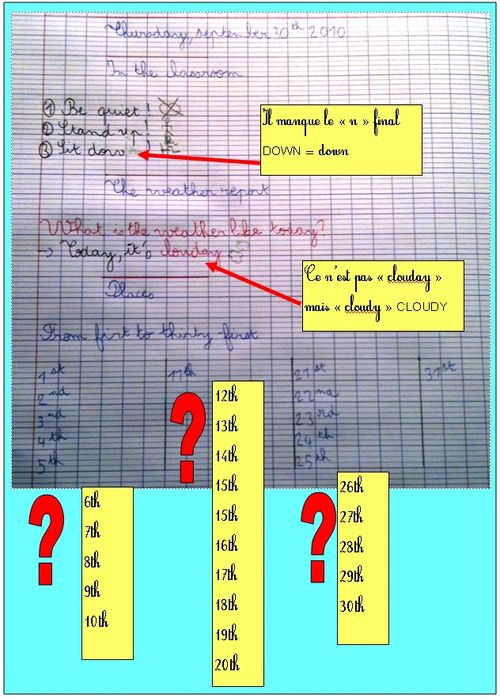 Thursday, september 30th 2010
In the classroom
① Be quiet!
② Stand up!
③ Sit dow !
Il manque le « n » final
DOWN = down
The weather report
What is the weather like today?
→ Today, it's clouday
Ce n'est pas « clouday »
mais « cloudy » CLOUDY
Places
From firt to thirty first
1st
2nd
3rd
4th
5th
6th
7th
8th
9th
10th
11th
12th
13th
14th
15th
15th
16th
17th
18th
19th
20th
21st
22nd
23rd
24th
25th
26th
27th
28th
29th
30th
31st
? ? ?